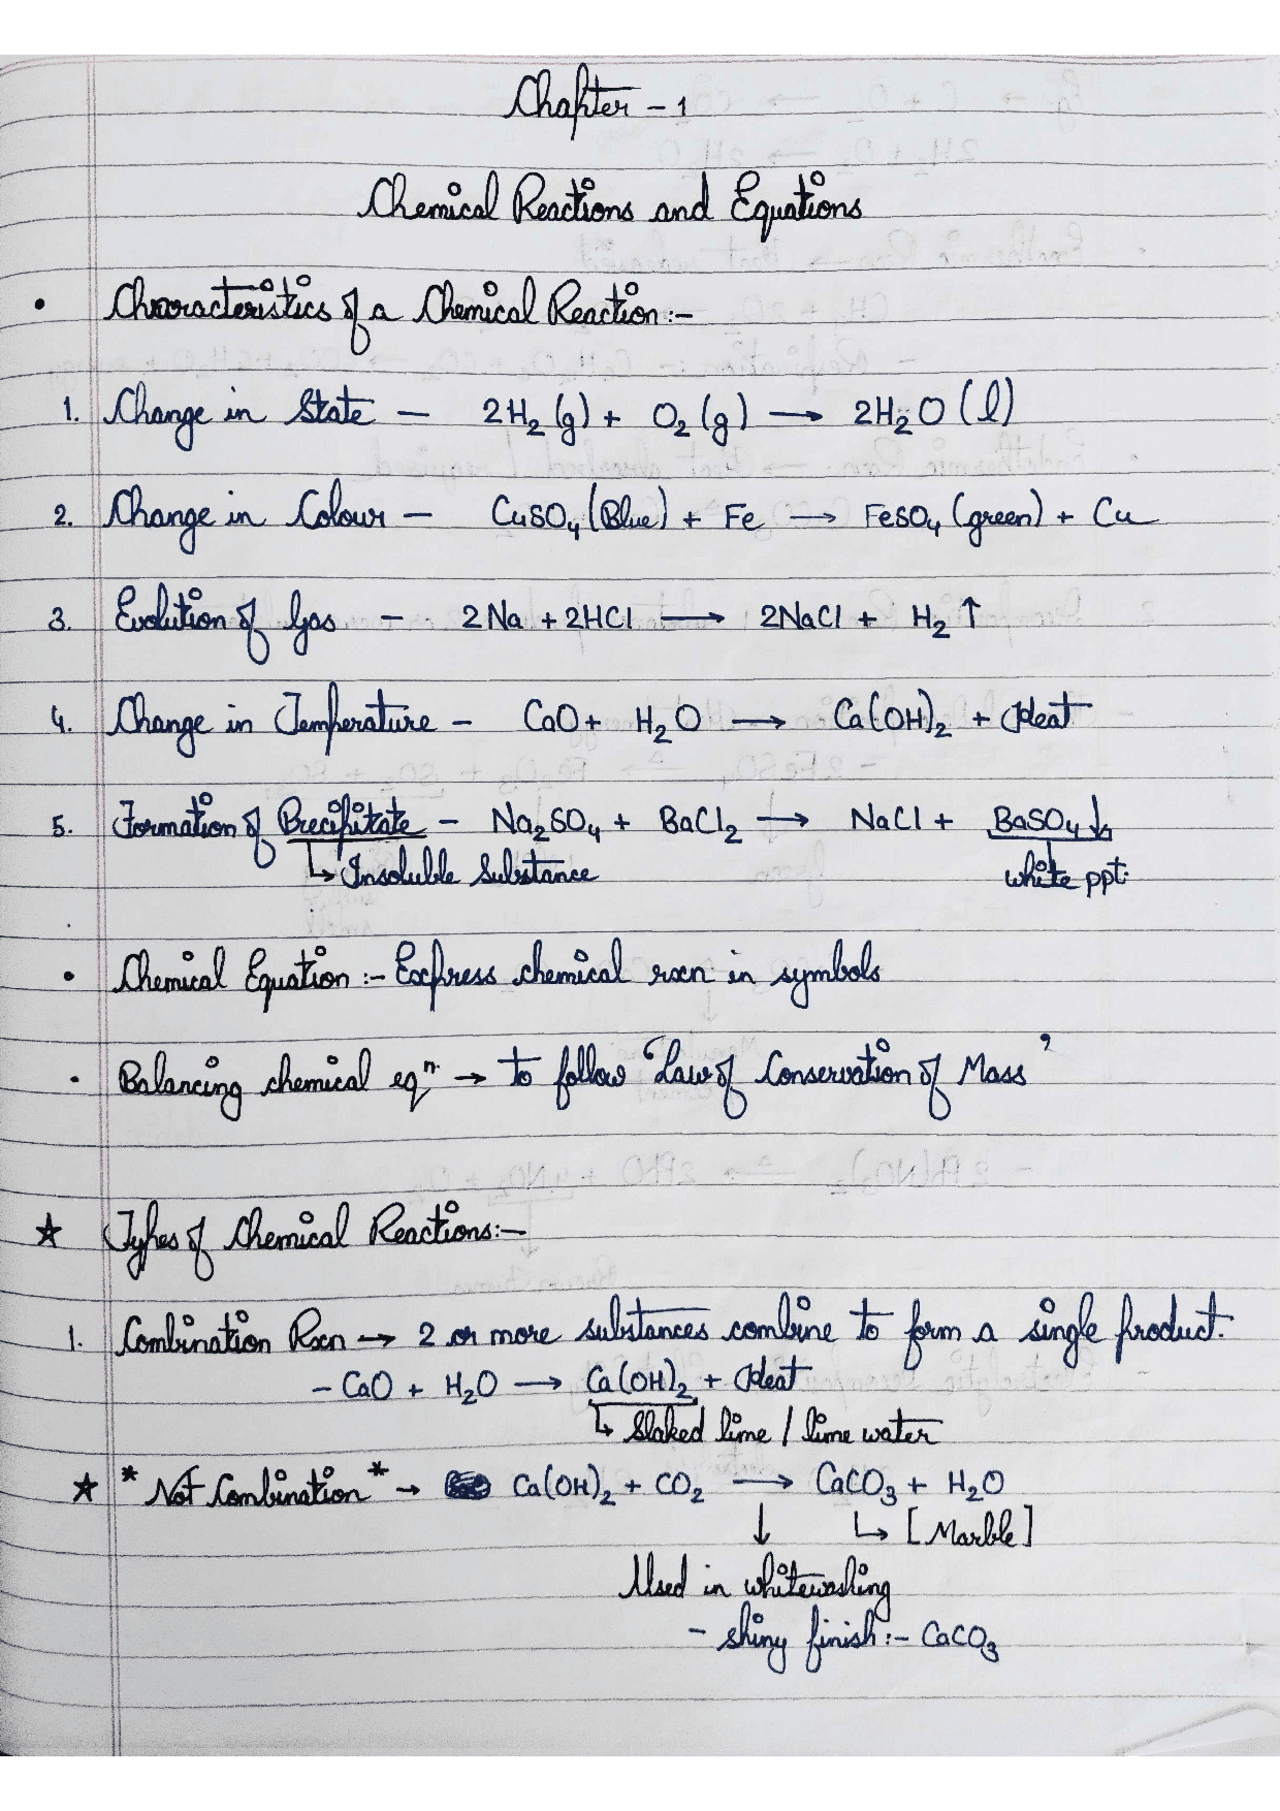 Chapter - 1
Chemical Reactions and Equations
• Characteristics of a Chemical Reaction :-
1. Change in State - 2H₂ (g) + O₂ (g) → 2H₂O (l)
2. Change in Colour - CuSO₄ (Blue) + Fe → FeSO₄ (green) + Cu
3. Evolution of Gas - 2Na + 2HCl → 2NaCl + H₂ ↑
4. Change in Temperature - CaO + H₂O → Ca(OH)₂ + Heat
5. Formation of Precipitate - Na₂SO₄ + BaCl₂ → NaCl + BaSO₄ ↓
↳ Insoluble Substance white ppt.
• Chemical Equation :- Express chemical rxn in symbols
• Balancing chemical eqⁿ. → to follow 'Law of Conservation of Mass'
☆ Types of Chemical Reactions :-
1. Combination Rxn → 2 or more substances combine to form a single product.
- CaO + H₂O → Ca(OH)₂ + Heat
↳ Slaked lime / lime water
☆ * Not Combination * → Ca(OH)₂ + CO₂ → CaCO₃ + H₂O
↓ ↳ [Marble]
Used in whitewashing
- shiny finish :- CaCO₃